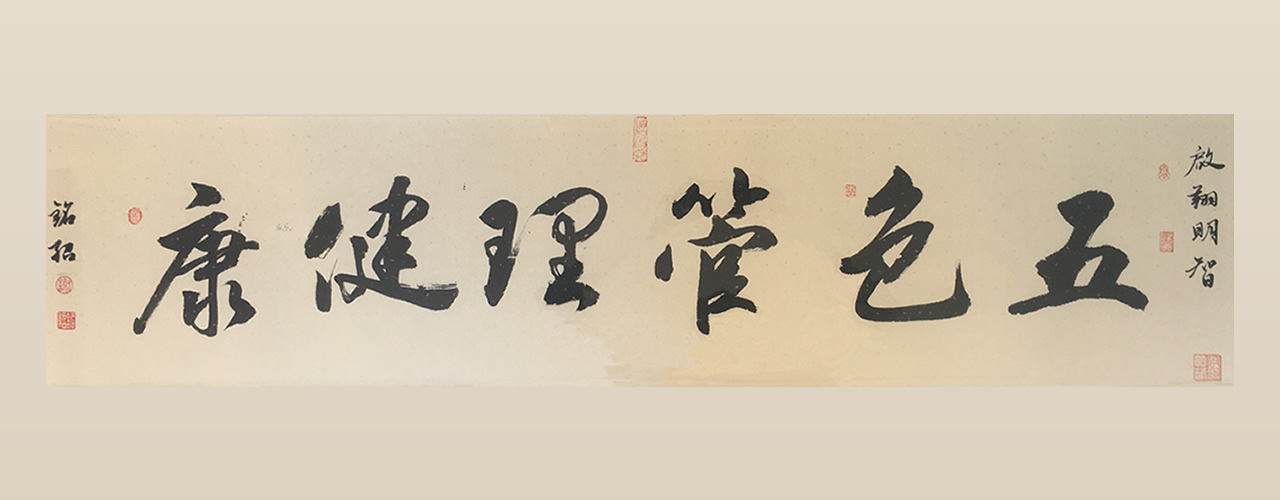 啟翔明智
五色管理健康
銘招